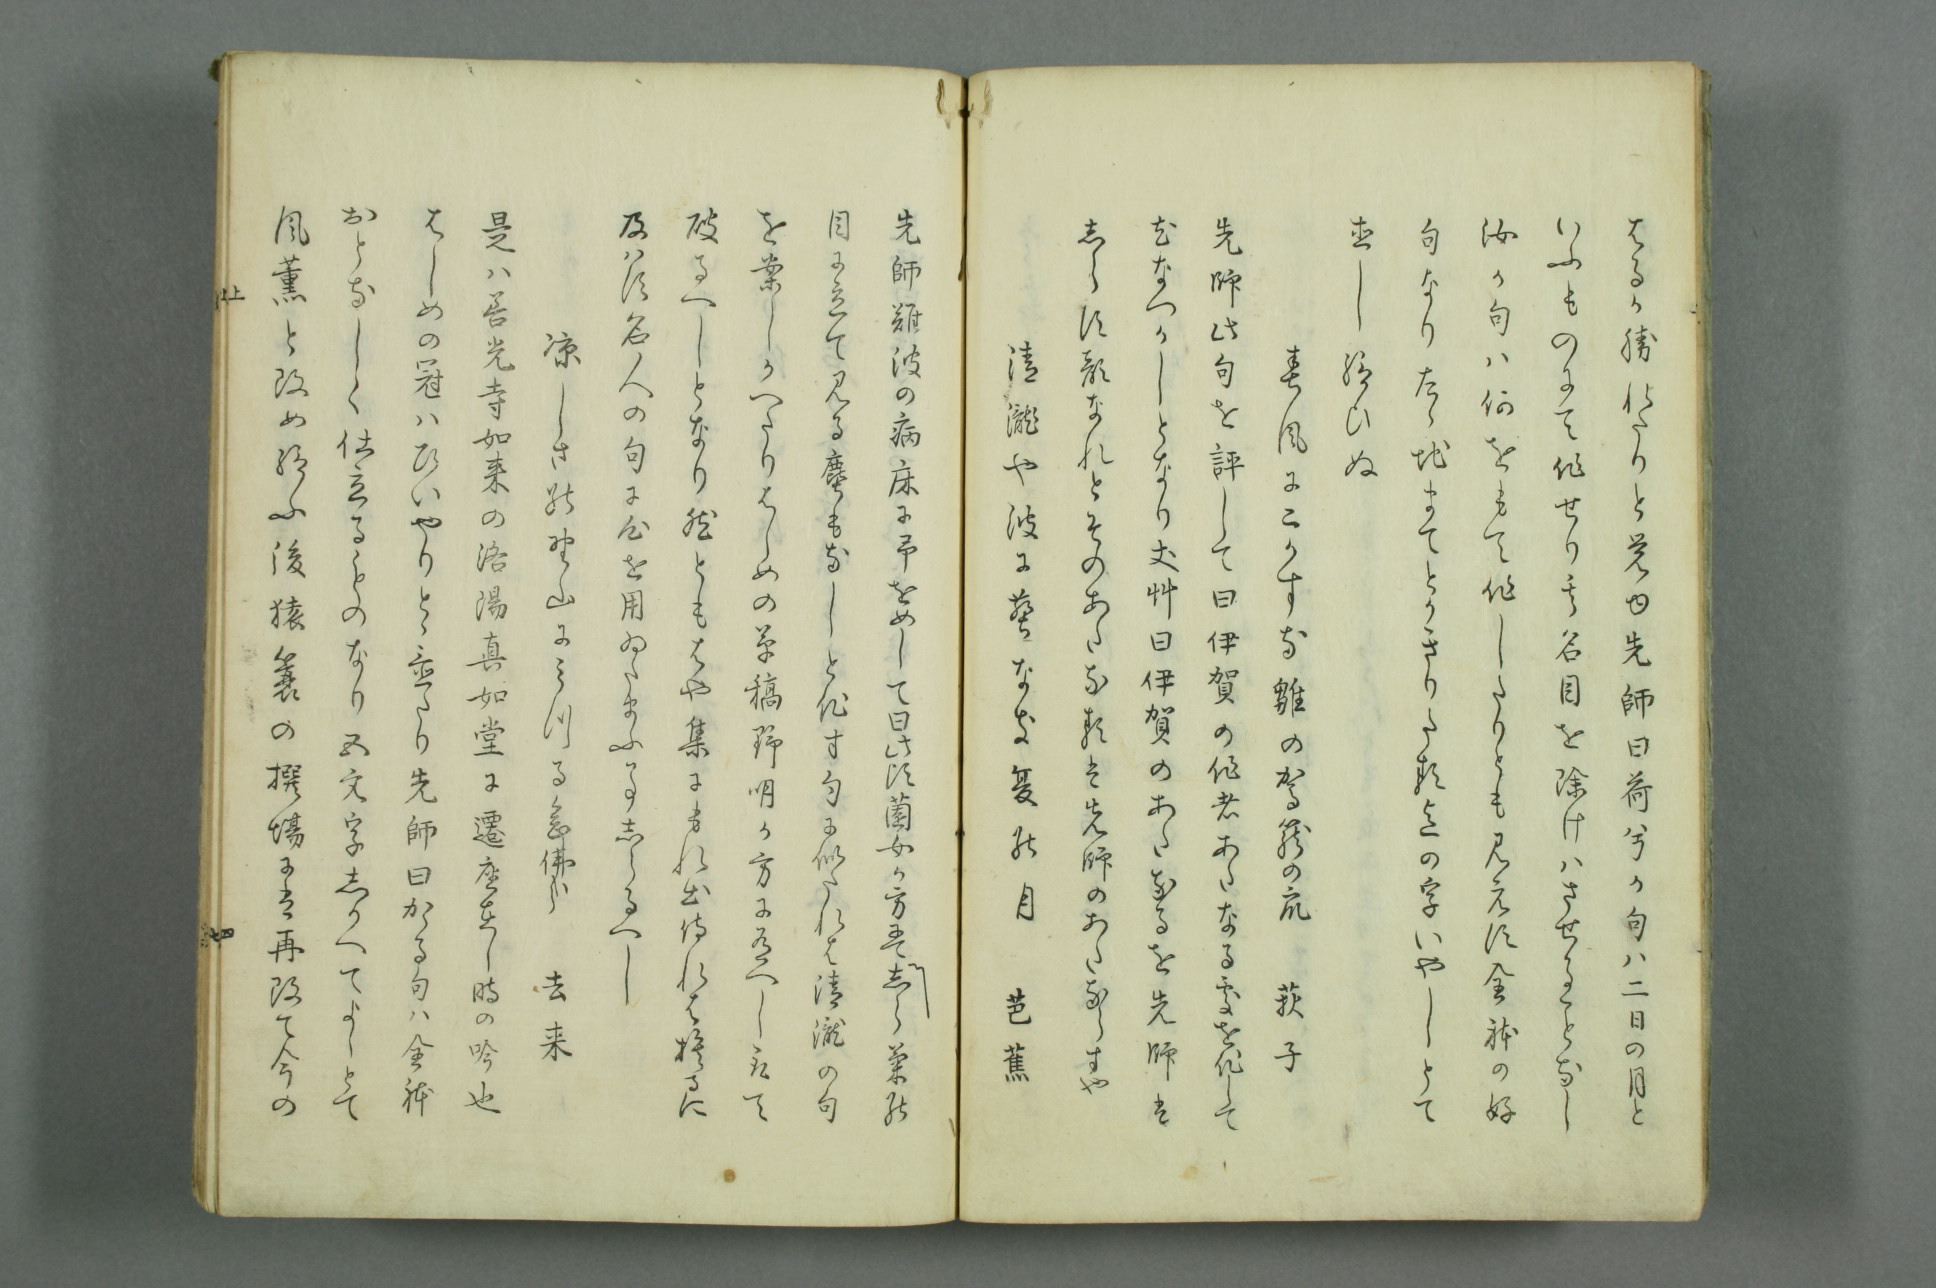 はるか勝れたりと覚ゆ先師曰荷兮か句ハ二日の月と
いふものにて作せり其名目を除けハさせることなし
汝か句ハ何をもて作したりとも見えす全躰の好
句なりたゝ地まてとかきりたる迄の字いやしとて
直し給ひぬ
春風にこかすな雛の駕籠の衆　萩子
先師此句を評して曰伊賀の作者あたなる處を作して
尤なつかしとなり丈艸曰伊賀のあたなるを先師は
しらす顔なれとそのあたなるは先師のあたならすや
清瀧や波に塵なき夏の月　芭蕉
先師難波の病床に予をめして曰此頃園女か方にてしら菊の
目に立て見る塵もなしと作す句に似たれは清瀧の句
を案しかへたりはしめの草稿野明か方に有へし取て
破るへしとなり然ともはや集にもれ出侍れは捨るに
及ハす名人の句に心を用ゐたまふ事しらるへし
凉しさの野山にみつる念佛かな　去来
是ハ善光寺如来の洛陽真如堂に遷座在し時の吟也
はしめの冠ハひいやりとゝ云たり先師曰かゝる句ハ全躰
おとなしく仕立ることのなり五文字しかへてよしとて
風薫と改め給ふ後猿蓑の撰場には再改て今の
上
七四